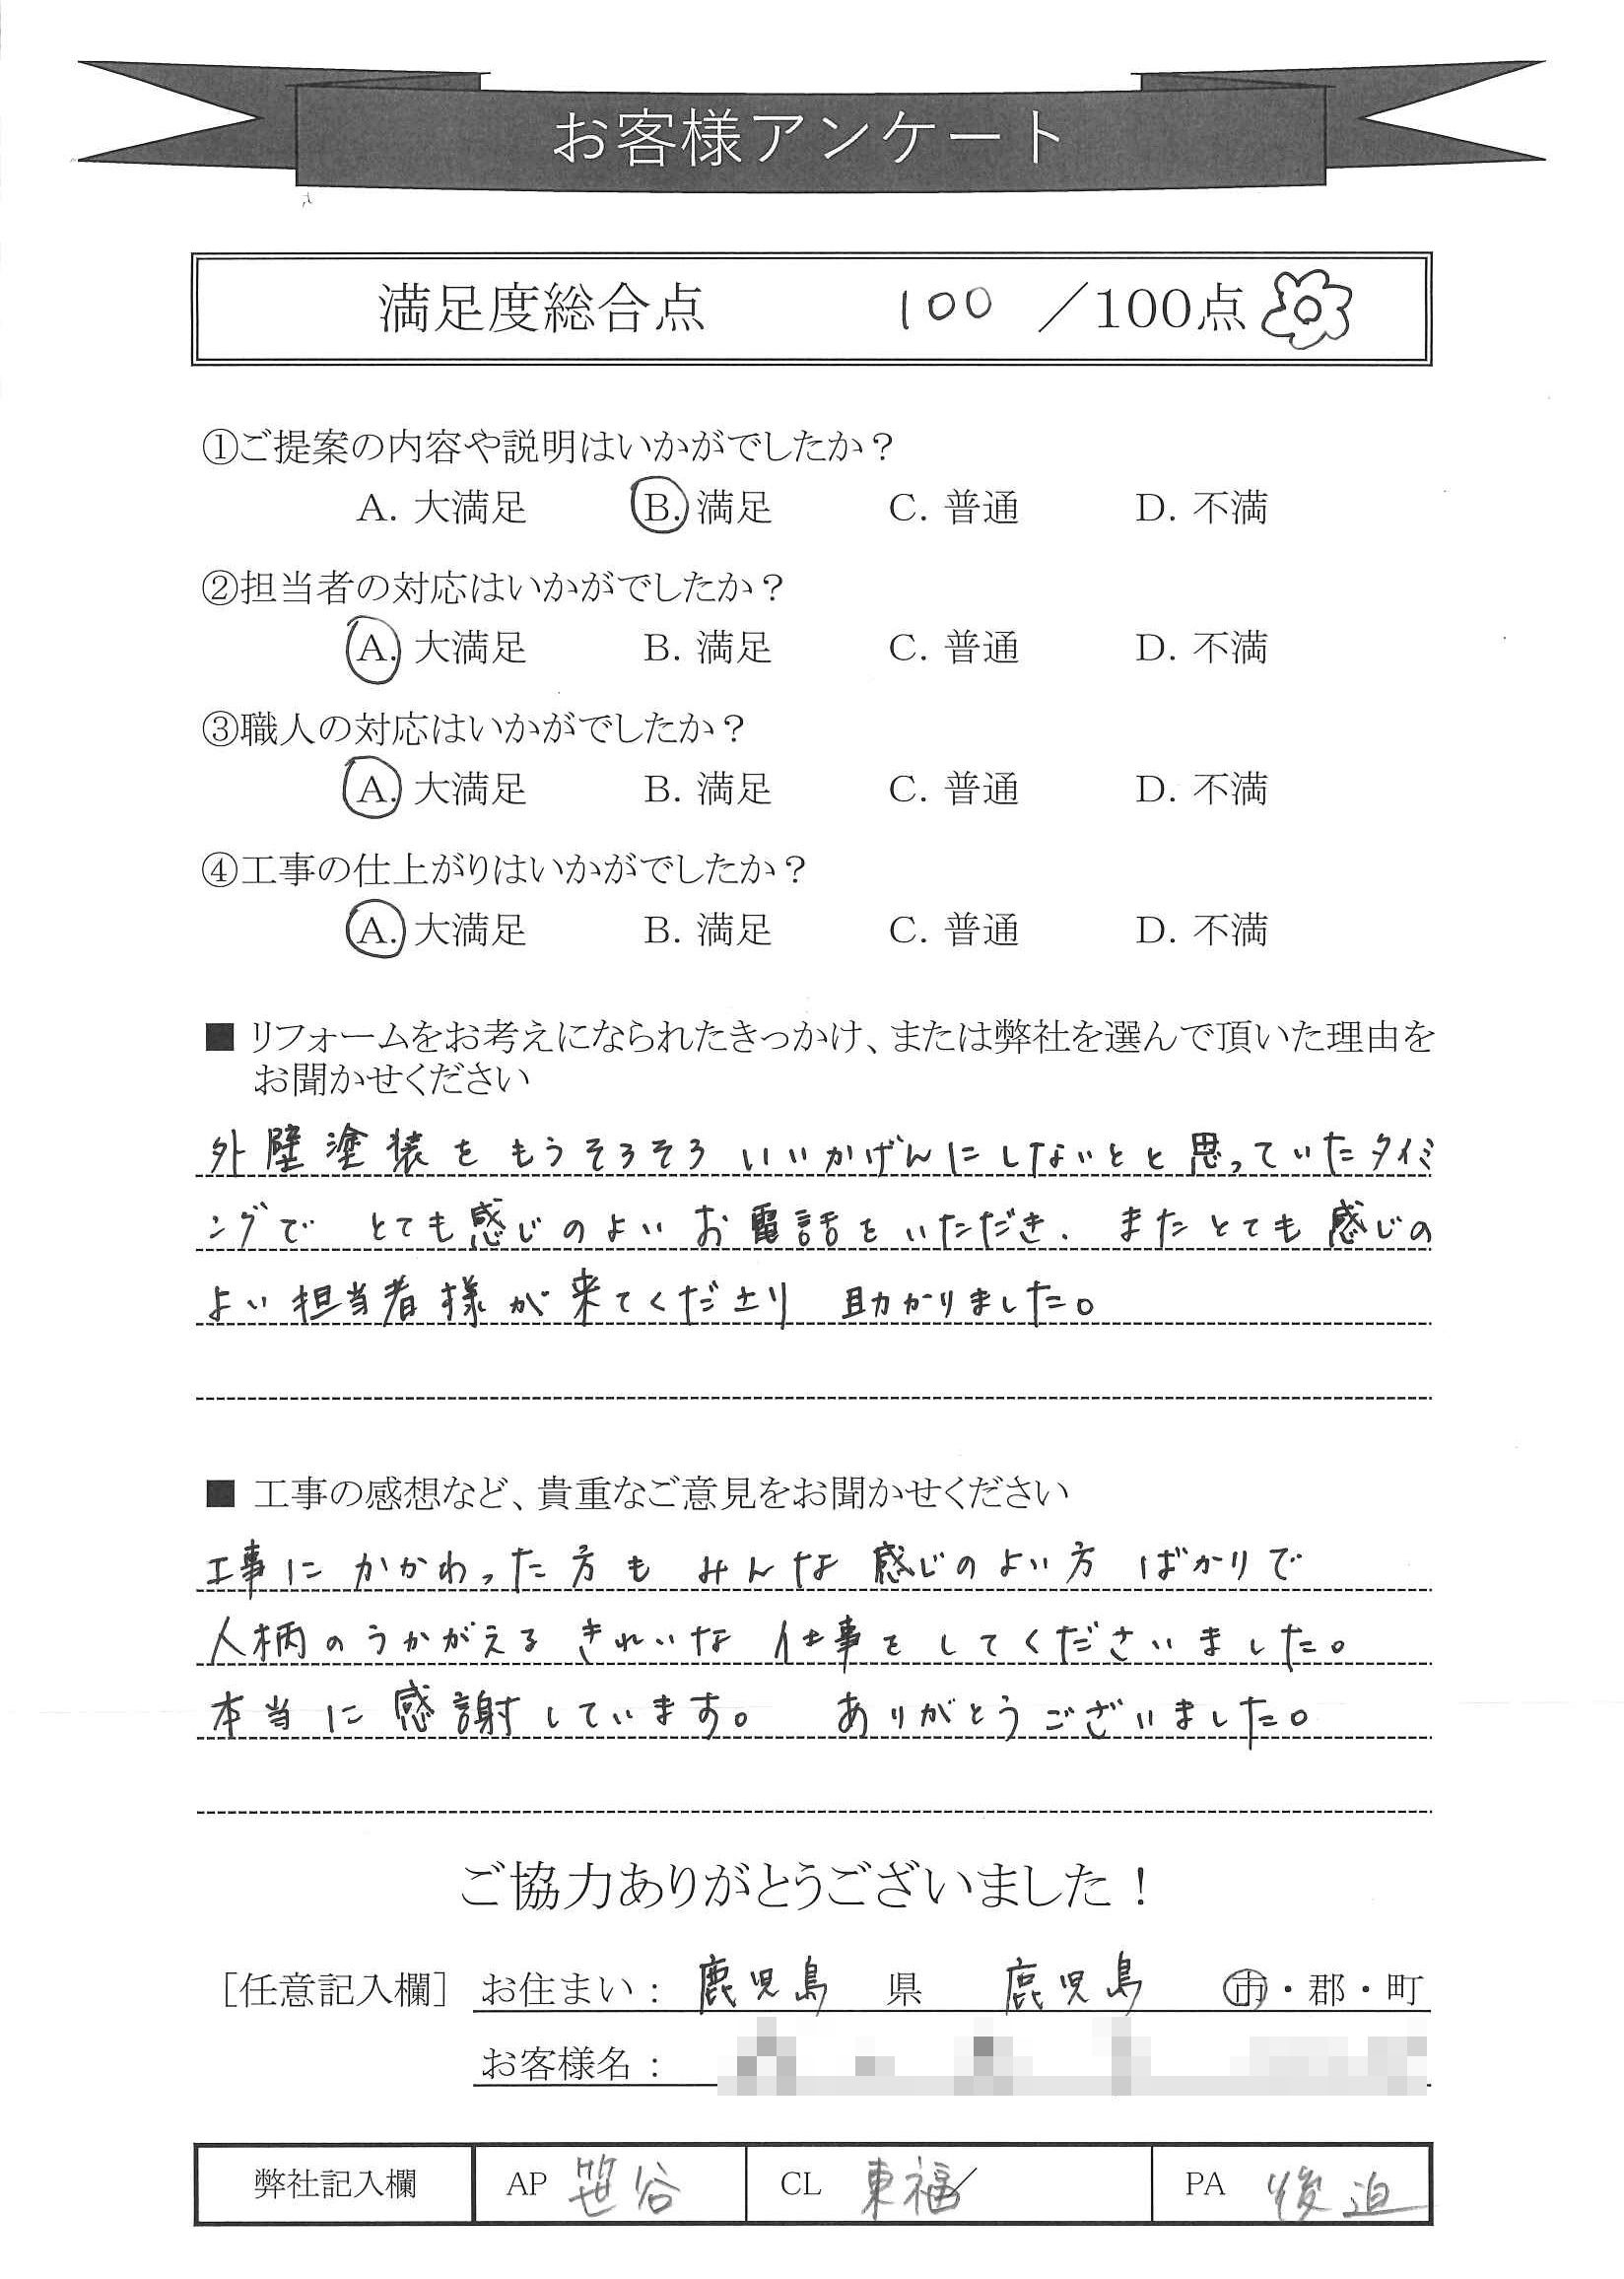 お客様アンケート
満足度総合点 100 ／100点
①ご提案の内容や説明はいかがでしたか？
A. 大満足 B. 満足 C. 普通 D. 不満
②担当者の対応はいかがでしたか？
A. 大満足 B. 満足 C. 普通 D. 不満
③職人の対応はいかがでしたか？
A. 大満足 B. 満足 C. 普通 D. 不満
④工事の仕上がりはいかがでしたか？
A. 大満足 B. 満足 C. 普通 D. 不満
■ リフォームをお考えになられたきっかけ、または弊社を選んで頂いた理由を
お聞かせください
外壁塗装をもうそろそろいいかげんにしないとと思っていたタイミ
ングで とても感じのよいお電話をいただき、またとても感じの
よい担当者様が来てくださり 助かりました。
■ 工事の感想など、貴重なご意見をお聞かせください
工事にかかわった方もみんな感じのよい方ばかりで
人柄のうかがえるきれいな仕事をしてくださいました。
本当に感謝しています。 ありがとうございました。
ご協力ありがとうございました！
［任意記入欄］ お住まい： 鹿児島 県 鹿児島 市・郡・町
お客様名：
弊社記入欄 AP 笹谷 CL 東福 PA 後迫